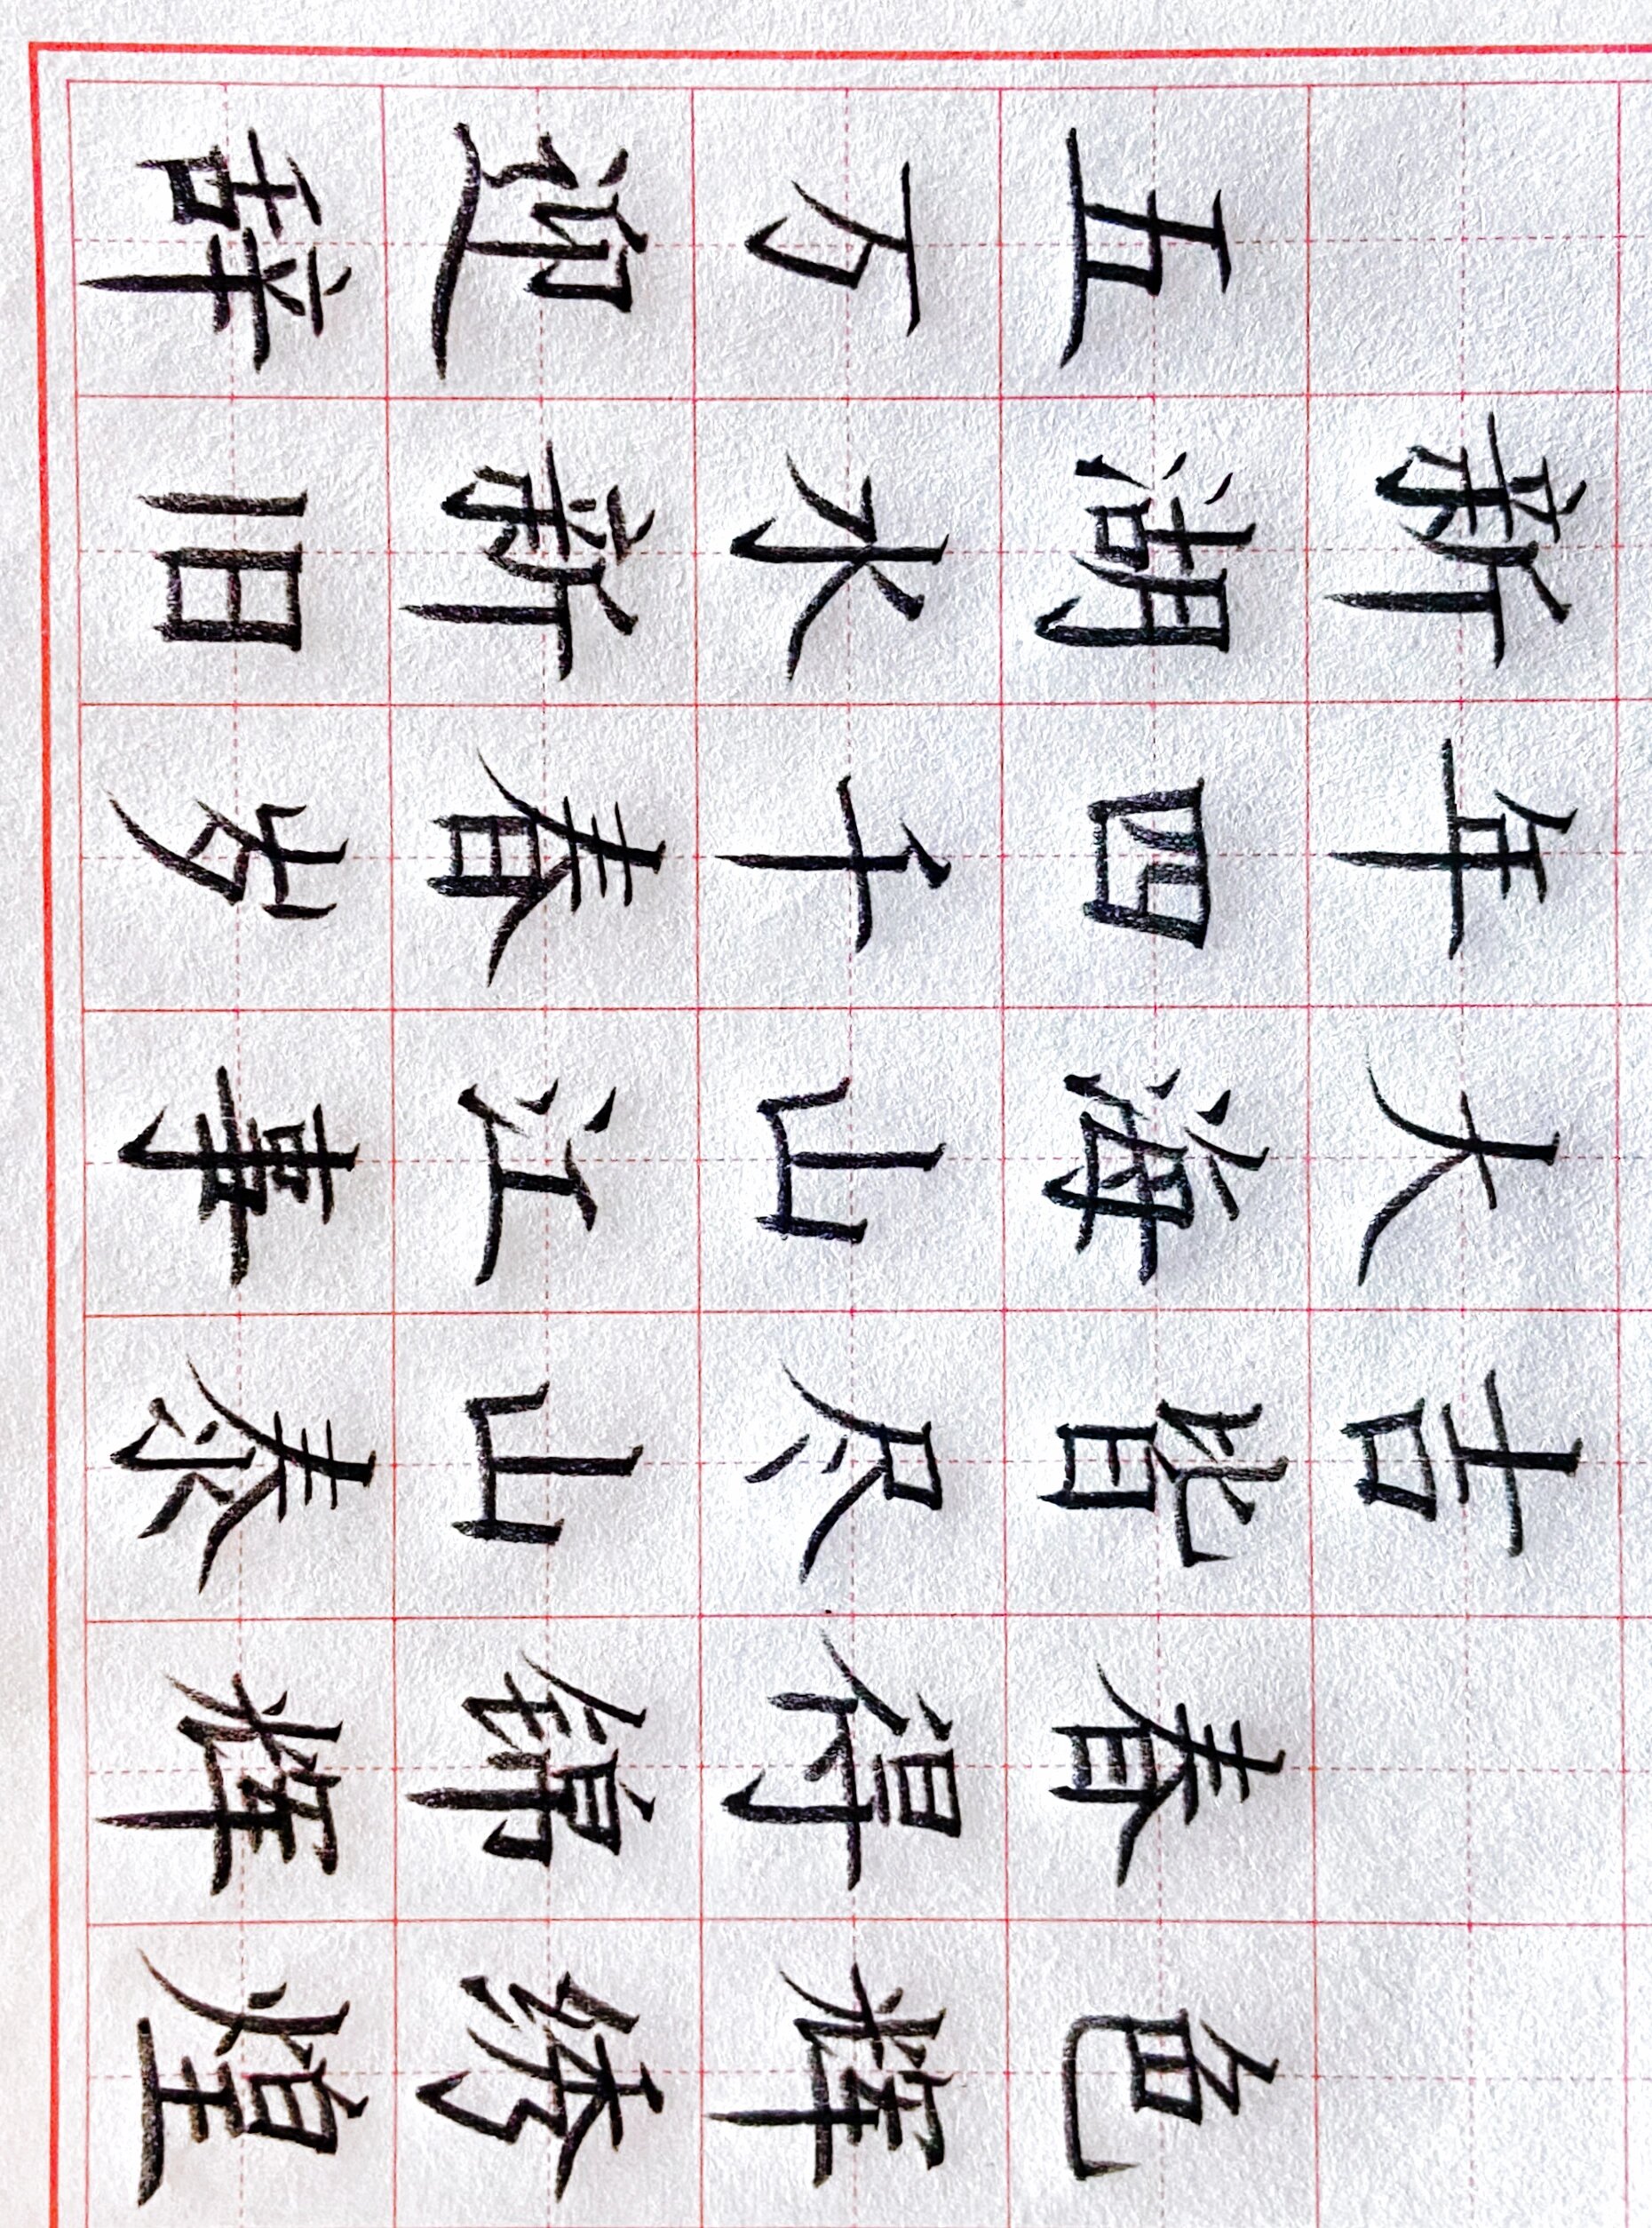 新年大吉
五湖四海皆春色
万水千山尽得辉
迎新春江山锦绣
辞旧岁事泰辉煌